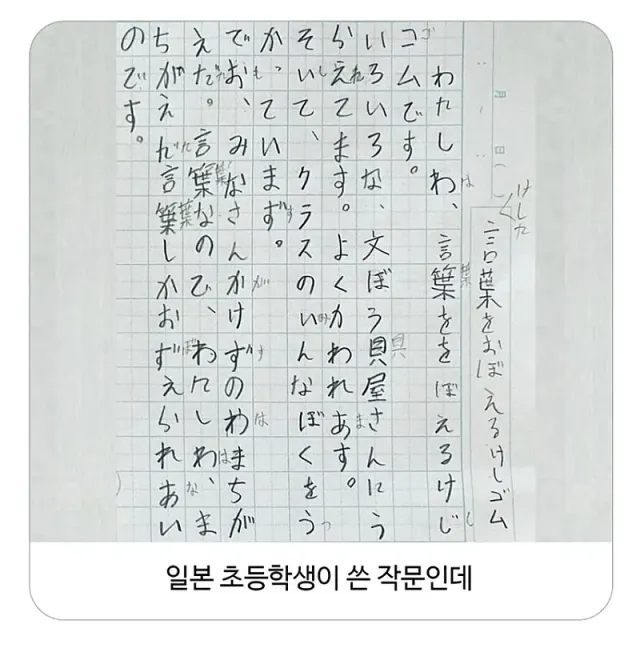 月 日( )
けした
言葉をおぼえるけしゴム
わたしわ、言葉ををぼえるけじ
コムです。
いろいろな、文ぼう貝屋さんにう
らえてます。よくかわれあす。
そいて、クラスのいんなぼくをう
かっていまず。
でお、みなさんかけずのわまちが
えだ。言葉なのひ、わたしわ、ま
ちがえれ言葉しかおずえられあい
のです。
일본 초등학생이 쓴 작문인데